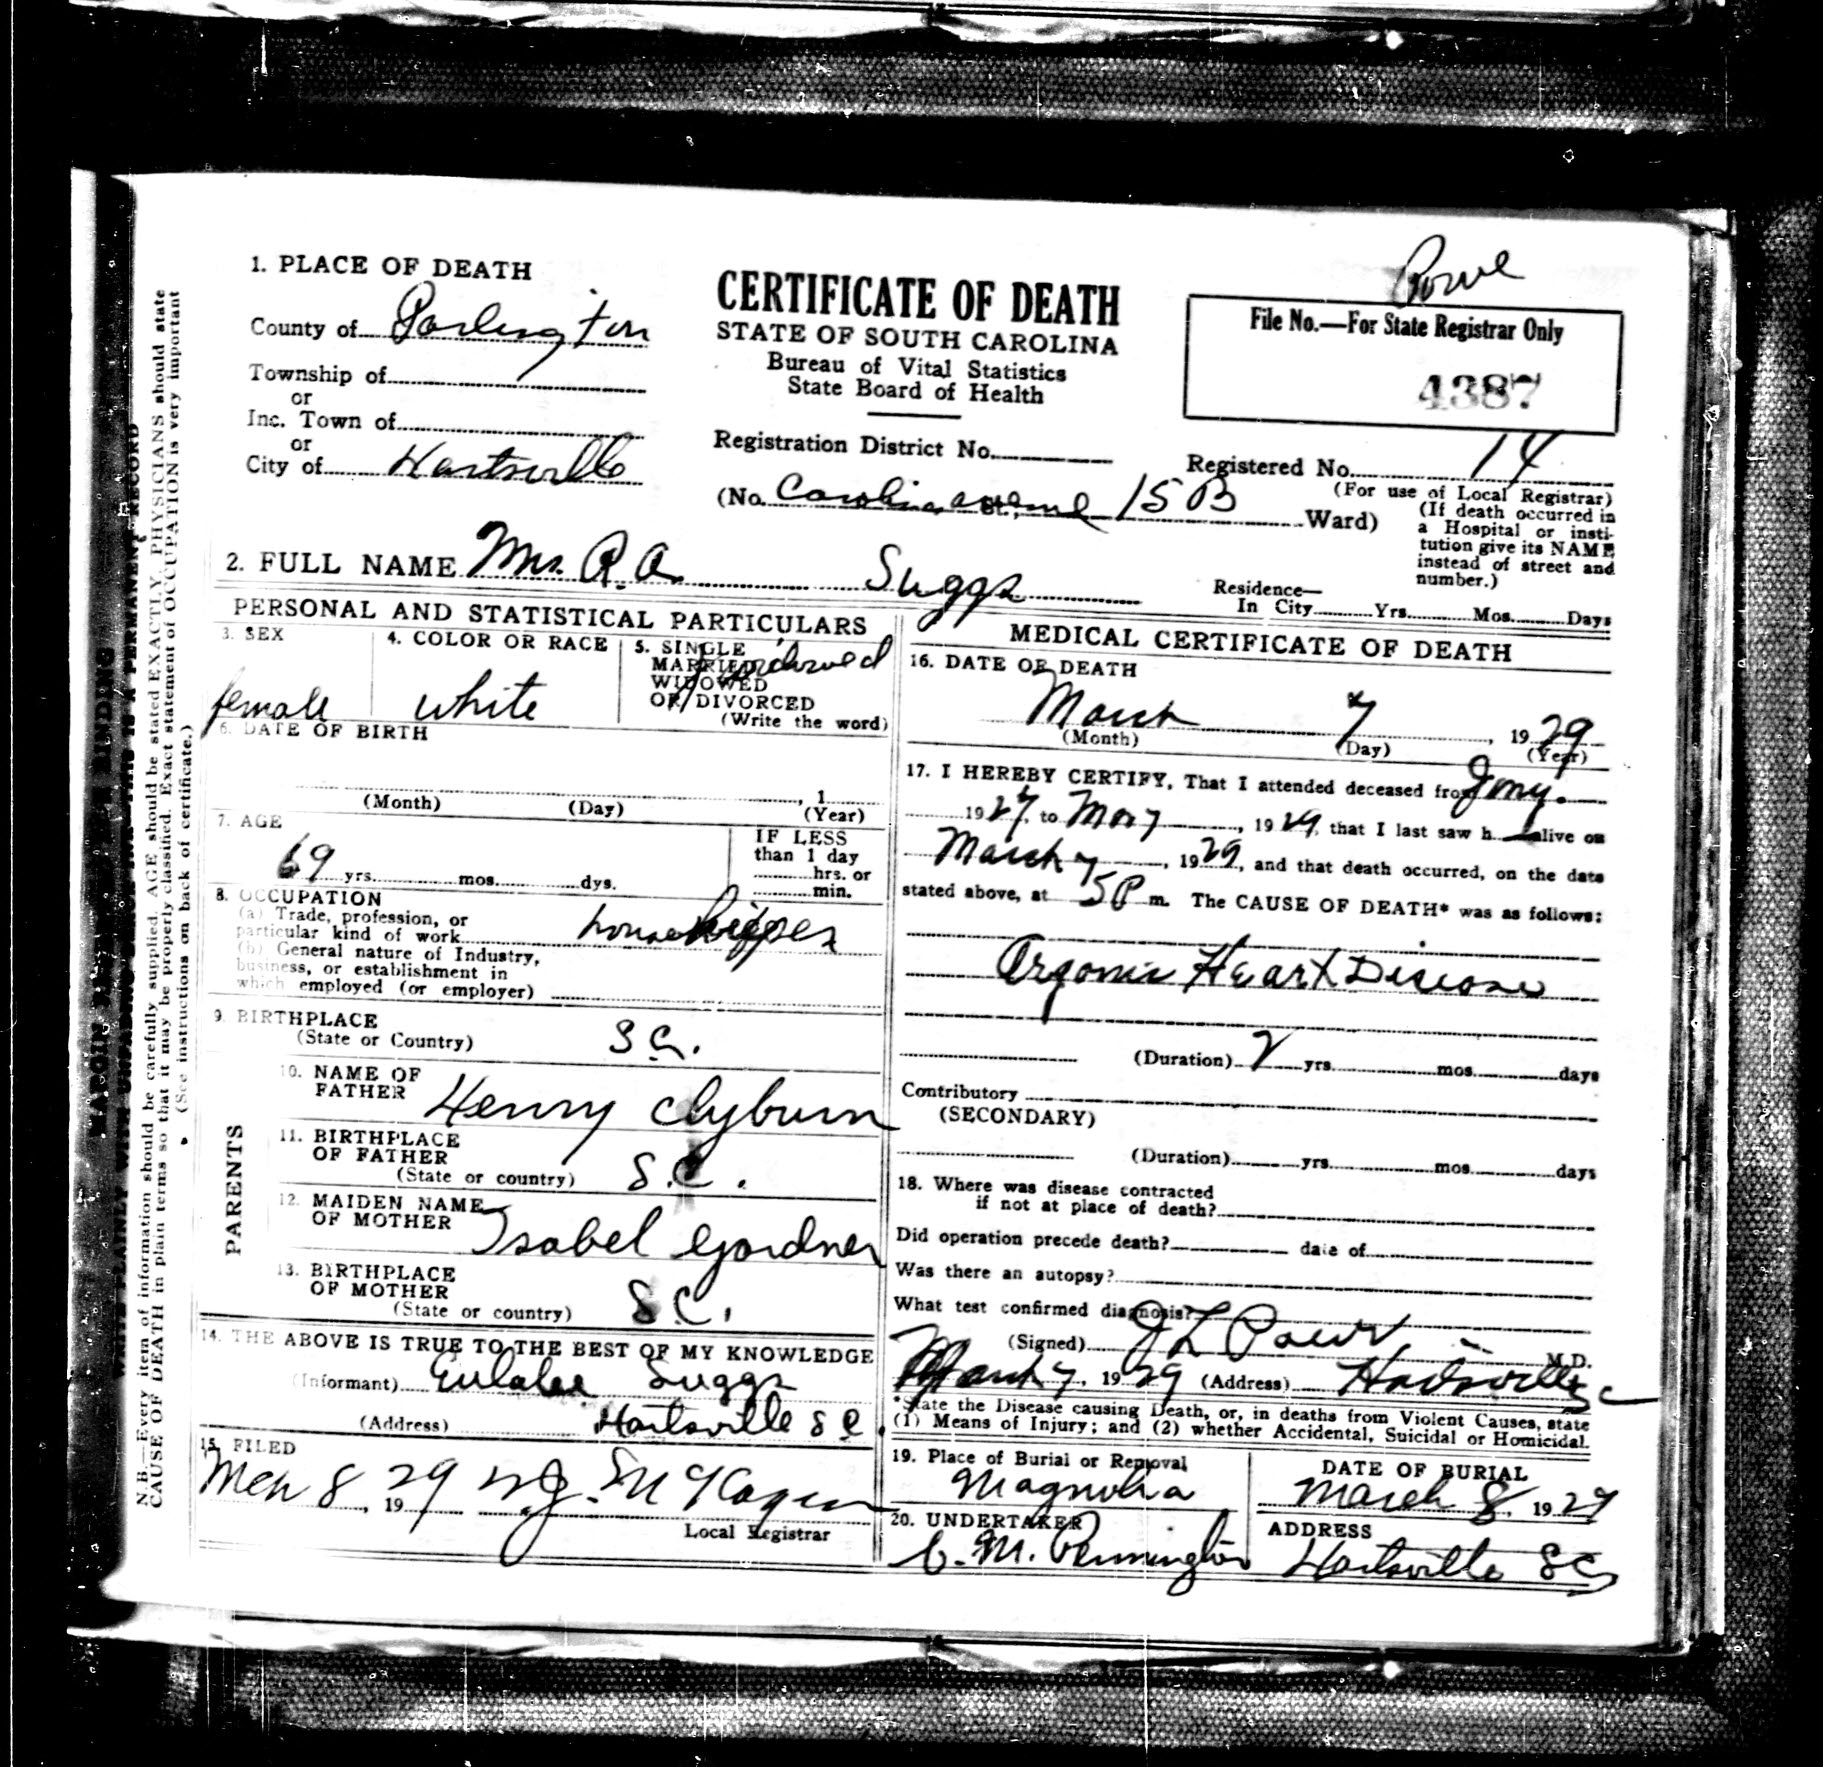 Rowe
1. PLACE OF DEATH
County of Darlington
Township of
or
Inc. Town of
or
City of Hartsville
CERTIFICATE OF DEATH
STATE OF SOUTH CAROLINA
Bureau of Vital Statistics
State Board of Health
Registration District No.
(No. Carolina avenue St., 15 B Ward)
File No.—For State Registrar Only
4387
Registered No. 14
(For use of Local Registrar)
(If death occurred in
a Hospital or insti-
tution give its NAME
instead of street and
number.)
2. FULL NAME Mrs. R. A. Suggs
Residence—
In City Yrs. Mos. Days
PERSONAL AND STATISTICAL PARTICULARS
3. SEX
female
4. COLOR OR RACE
white
5. SINGLE
MARRIED
WIDOWED
OR DIVORCED
(Write the word)
widowed
6. DATE OF BIRTH
, 1
(Month) (Day) (Year)
7. AGE
69 yrs. mos. dys.
IF LESS
than 1 day
hrs. or
min.
8. OCCUPATION
(a) Trade, profession, or
particular kind of work housekeeper
(b) General nature of Industry,
business, or establishment in
which employed (or employer)
9. BIRTHPLACE
(State or Country) S.C.
PARENTS
10. NAME OF
FATHER Henry Clyburn
11. BIRTHPLACE
OF FATHER
(State or country) S.C.
12. MAIDEN NAME
OF MOTHER Isabel Gardner
13. BIRTHPLACE
OF MOTHER
(State or country) S.C.
14. THE ABOVE IS TRUE TO THE BEST OF MY KNOWLEDGE
(Informant) Eulalee Suggs
(Address) Hartsville S C.
15. FILED
Mch 8, 1929
Local Registrar
MEDICAL CERTIFICATE OF DEATH
16. DATE OF DEATH
March 7, 1929
(Month) (Day) (Year)
17. I HEREBY CERTIFY, That I attended deceased from Jany.
1927, to Mar 7, 1929, that I last saw h alive on
March 7, 1929, and that death occurred, on the date
stated above, at 5 P m. The CAUSE OF DEATH* was as follows:
Organic Heart Disease
(Duration) 2 yrs. mos. days
Contributory
(SECONDARY)
(Duration) yrs. mos. days
18. Where was disease contracted
if not at place of death?
Did operation precede death? date of
Was there an autopsy?
What test confirmed diagnosis?
(Signed) J L M.D.
March 7, 1929 (Address) Hartsville S C
*State the Disease causing Death, or, in deaths from Violent Causes, state
(1) Means of Injury; and (2) whether Accidental, Suicidal or Homicidal.
19. Place of Burial or Removal
Magnolia
DATE OF BURIAL
March 8, 1929
20. UNDERTAKER
C. M. Pennington
ADDRESS
Hartsville S C
MARGIN RESERVED FOR BINDING
WRITE PLAINLY WITH UNFADING BLACK INK—THIS IS A PERMANENT RECORD
N. B.—Every item of information should be carefully supplied. AGE should be stated EXACTLY. PHYSICIANS should state
CAUSE OF DEATH in plain terms so that it may be properly classified. Exact statement of OCCUPATION is very important
(See instructions on back of certificate.)